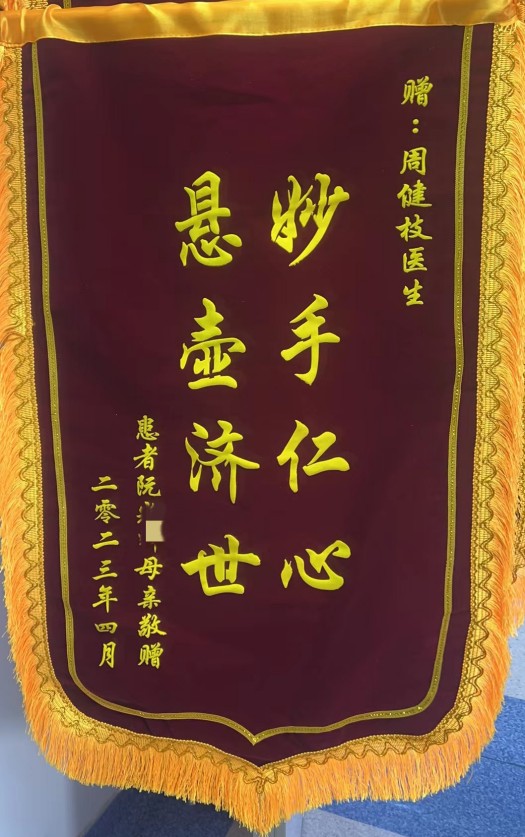 赠：周健枝医生
妙手仁心
悬壶济世
患者阮母亲敬赠
二零二三年四月